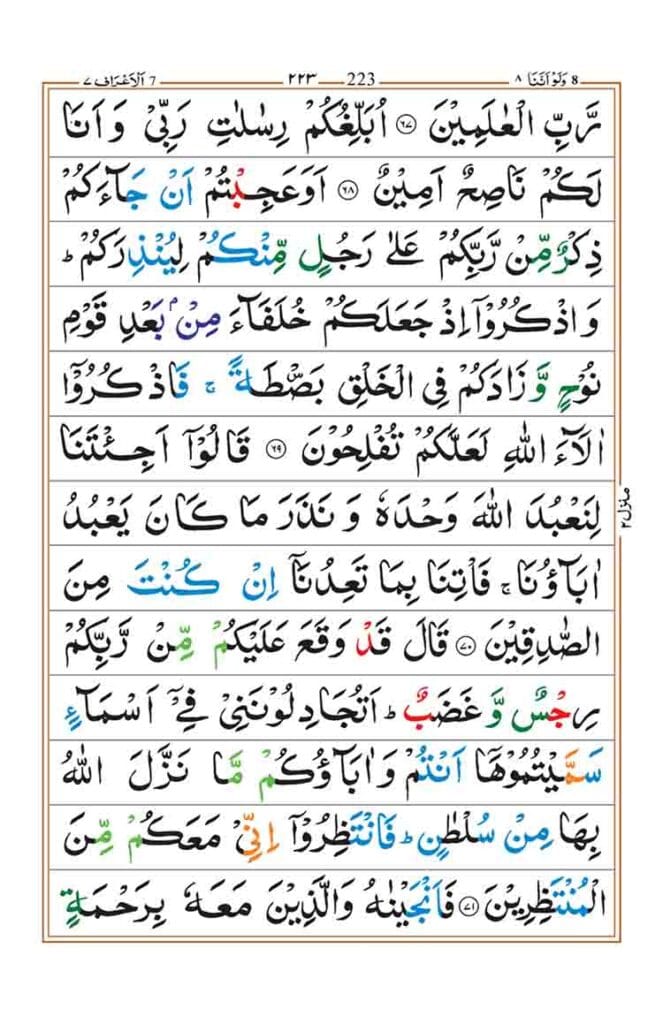 8 وَلَوْ اَنَّنَا ٨ 223 ٢٢٣ 7 اَلْاَعْرَاف ٧
رَّبِّ الْعٰلَمِيْنَ ۝٦٧ اُبَلِّغُكُمْ رِسٰلٰتِ رَبِّىْ وَ اَنَا
لَكُمْ نَاصِحٌ اَمِيْنٌ ۝٦٨ اَوَعَجِبْتُمْ اَنْ جَآءَكُمْ
ذِكْرٌ مِّنْ رَّبِّكُمْ عَلٰى رَجُلٍ مِّنْكُمْ لِيُنْذِرَكُمْ ؕ
وَ اذْكُرُوْۤا اِذْ جَعَلَكُمْ خُلَفَآءَ مِنْۢ بَعْدِ قَوْمِ
نُوْحٍ وَّ زَادَكُمْ فِى الْخَلْقِ بَصْۜطَةً ۚ فَاذْكُرُوْۤا
اٰلَآءَ اللّٰهِ لَعَلَّكُمْ تُفْلِحُوْنَ ۝٦٩ قَالُوْۤا اَجِئْتَنَا
لِنَعْبُدَ اللّٰهَ وَحْدَهٗ وَ نَذَرَ مَا كَانَ يَعْبُدُ
اٰبَآؤُنَا ۚ فَاْتِنَا بِمَا تَعِدُنَاۤ اِنْ كُنْتَ مِنَ
الصّٰدِقِيْنَ ۝٧٠ قَالَ قَدْ وَقَعَ عَلَيْكُمْ مِّنْ رَّبِّكُمْ
رِجْسٌ وَّ غَضَبٌ ؕ اَتُجَادِلُوْنَنِىْ فِىْۤ اَسْمَآءٍ
سَمَّيْتُمُوْهَاۤ اَنْتُمْ وَ اٰبَآؤُكُمْ مَّا نَزَّلَ اللّٰهُ
بِهَا مِنْ سُلْطٰنٍ ؕ فَانْتَظِرُوْۤا اِنِّىْ مَعَكُمْ مِّنَ
الْمُنْتَظِرِيْنَ ۝٧١ فَاَنْجَيْنٰهُ وَالَّذِيْنَ مَعَهٗ بِرَحْمَةٍ
منزل ٢